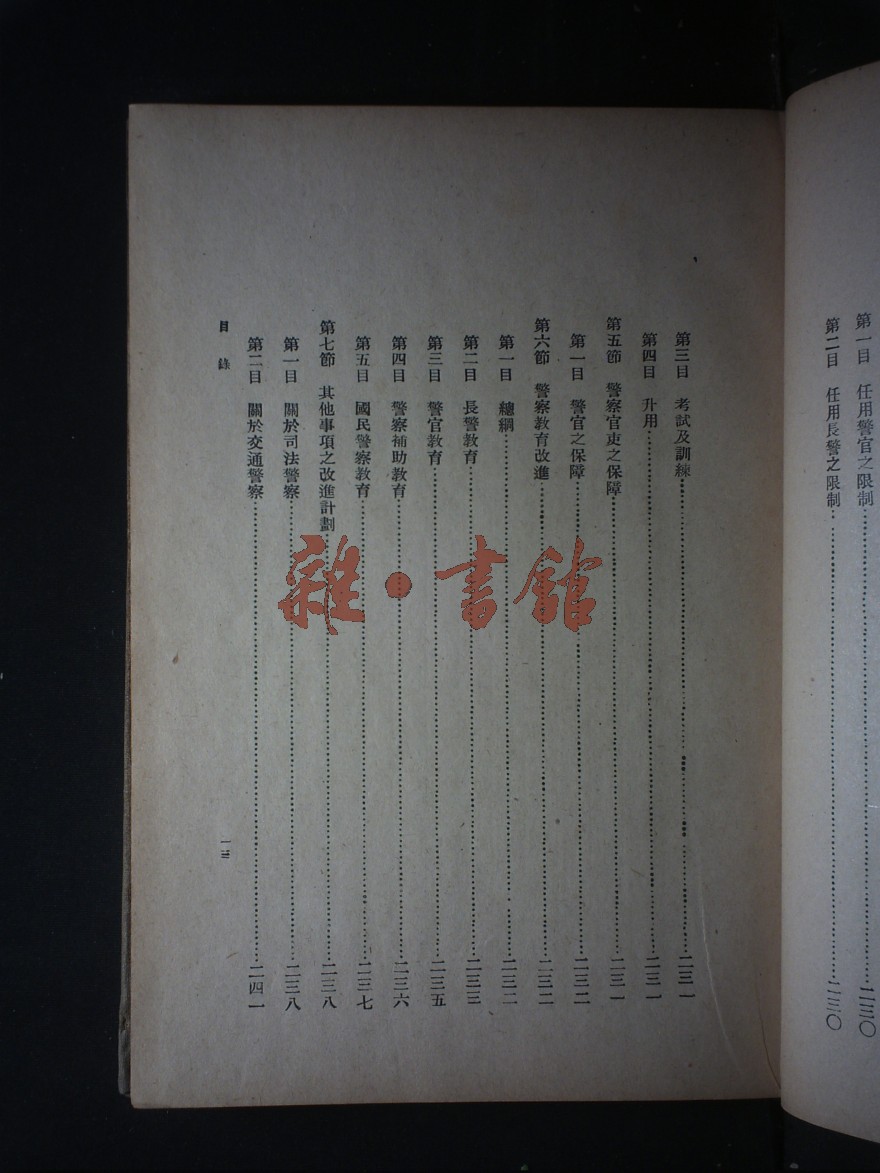 第一目　任用警官之限制……二三〇
第二目　任用長警之限制……二三〇
第三目　考試及訓練……二三一
第四目　升用……二三一
第五節　警察官吏之保障……二三一
第一目　警官之保障……二三二
第六節　警察教育改進……二三二
第一目　總綱……二三二
第二目　長警教育……二三三
第三目　警官教育……二三五
第四目　警察補助教育……二三六
第五目　國民警察教育……二三七
第七節　其他事項之改進計劃……二三八
第一目　關於司法警察……二三八
第二目　關於交通警察……二四一
目錄
一三
雜·書館